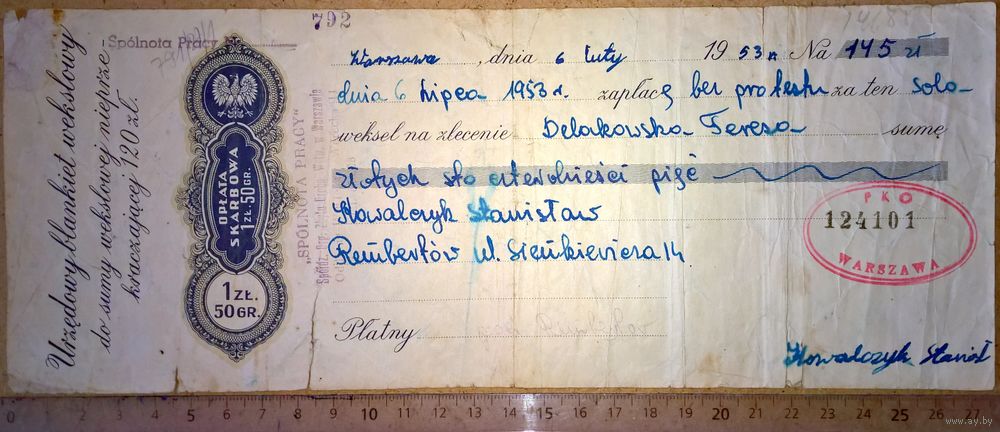 792
Spólnota Pracy
Urzędowy blankiet wekslowy
do sumy wekslowej nieprze-
kraczającej 120 zł.
OPŁATA
SKARBOWA
1 ZŁ. 50 GR.
1 ZŁ.
50 GR.
„SPÓLNOTA PRACY”
Warszawa, dnia 6 luty 1953 r. Na 145 zł
dnia 6 lipca 1953 r. zapłacę bez protestu za ten sola-
weksel na zlecenie Delakowska Teresa sumę
złotych sto czterdzieści pięć
Kowalczyk Stanisław
Rembertów ul. Sienkiewicza 14
Płatny
PKO
124101
WARSZAWA
Kowalczyk Stanisł
0 1 2 3 4 5 6 7 8 9 10 11 12 13 14 15 16 17 18 19 20 21 22 23 24 25 26 27
www.ay.by